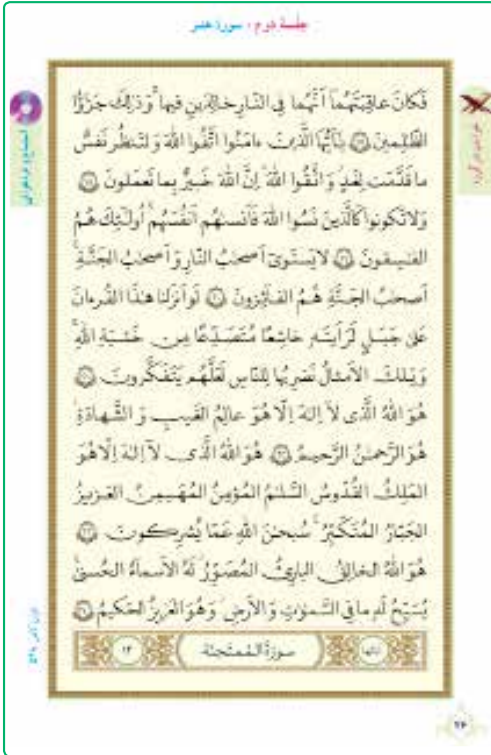 جلسهٔ دوم • سورهٔ حشر
فَكانَ عاقِبَتَهُما أَنَّهُما فِي النّارِ خالِدَينِ فيها ۚ وَ ذٰلِكَ جَزٰٓؤُا
الظّٰلِمينَ ﴿١٧﴾ يٰٓأَيُّهَا الَّذينَ ءامَنُوا اتَّقُوا اللهَ وَ لتَنظُر نَفسٌ
ما قَدَّمَت لِغَدٍ ۖ وَ اتَّقُوا اللهَ ۚ إِنَّ اللهَ خَبيرٌ بِما تَعمَلونَ ﴿١٨﴾
وَ لا تَكونوا كَالَّذينَ نَسُوا اللهَ فَأَنسىٰهُم أَنفُسَهُم ۚ أُولٰٓئِكَ هُمُ
الفٰسِقونَ ﴿١٩﴾ لا يَستَوىٓ أَصحٰبُ النّارِ وَ أَصحٰبُ الجَنَّةِ ۚ
أَصحٰبُ الجَنَّةِ هُمُ الفآئِزونَ ﴿٢٠﴾ لَو أَنزَلنا هٰذَا القُرءانَ
عَلىٰ جَبَلٍ لَرَأَيتَهُ خاشِعًا مُتَصَدِّعًا مِن خَشيَةِ اللهِ ۚ
وَ تِلكَ الأَمثالُ نَضرِبُها لِلنّاسِ لَعَلَّهُم يَتَفَكَّرونَ ﴿٢١﴾
هُوَ اللهُ الَّذى لآ إِلٰهَ إِلّا هُوَ ۖ عالِمُ الغَيبِ وَ الشَّهادَةِ ۖ
هُوَ الرَّحمٰنُ الرَّحيمُ ﴿٢٢﴾ هُوَ اللهُ الَّذى لآ إِلٰهَ إِلّا هُوَ
المَلِكُ القُدّوسُ السَّلٰمُ المُؤمِنُ المُهَيمِنُ العَزيزُ
الجَبّارُ المُتَكَبِّرُ ۚ سُبحٰنَ اللهِ عَمّا يُشرِكونَ ﴿٢٣﴾
هُوَ اللهُ الخالِقُ البارِئُ المُصَوِّرُ ۖ لَهُ الأَسمآءُ الحُسنىٰ ۚ
يُسَبِّحُ لَهُ ما فِي السَّمٰوٰتِ وَ الأَرضِ ۖ وَ هُوَ العَزيزُ الحَكيمُ ﴿٢٤﴾
سورَةُ المُمتَحَنَة
١٣